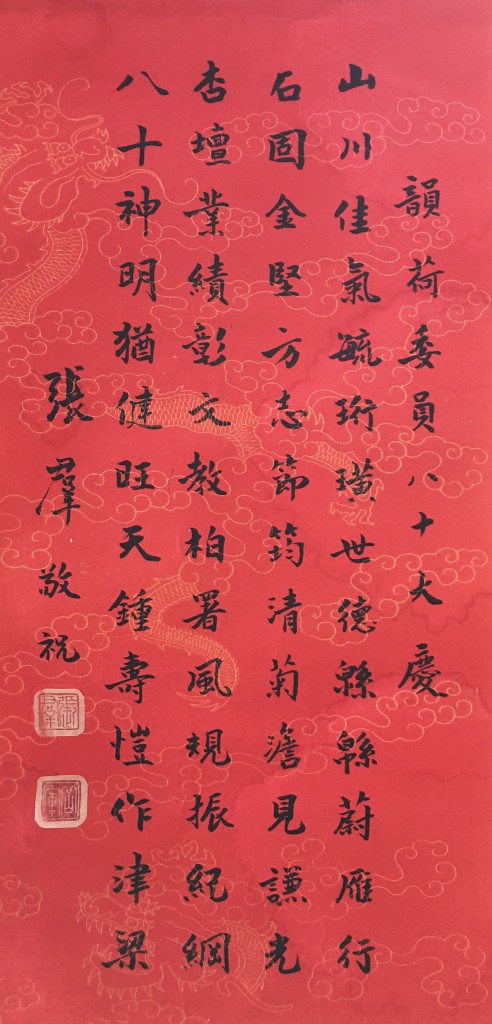 韻荷委員八十大慶
山川佳氣毓珩璜世德緜緜蔚雁行
石固金堅方志節筠清菊澹見謙光
杏壇業績彰文教柏署風規振紀綱
八十神明猶健旺天鍾壽愷作津梁
張羣敬祝
張羣